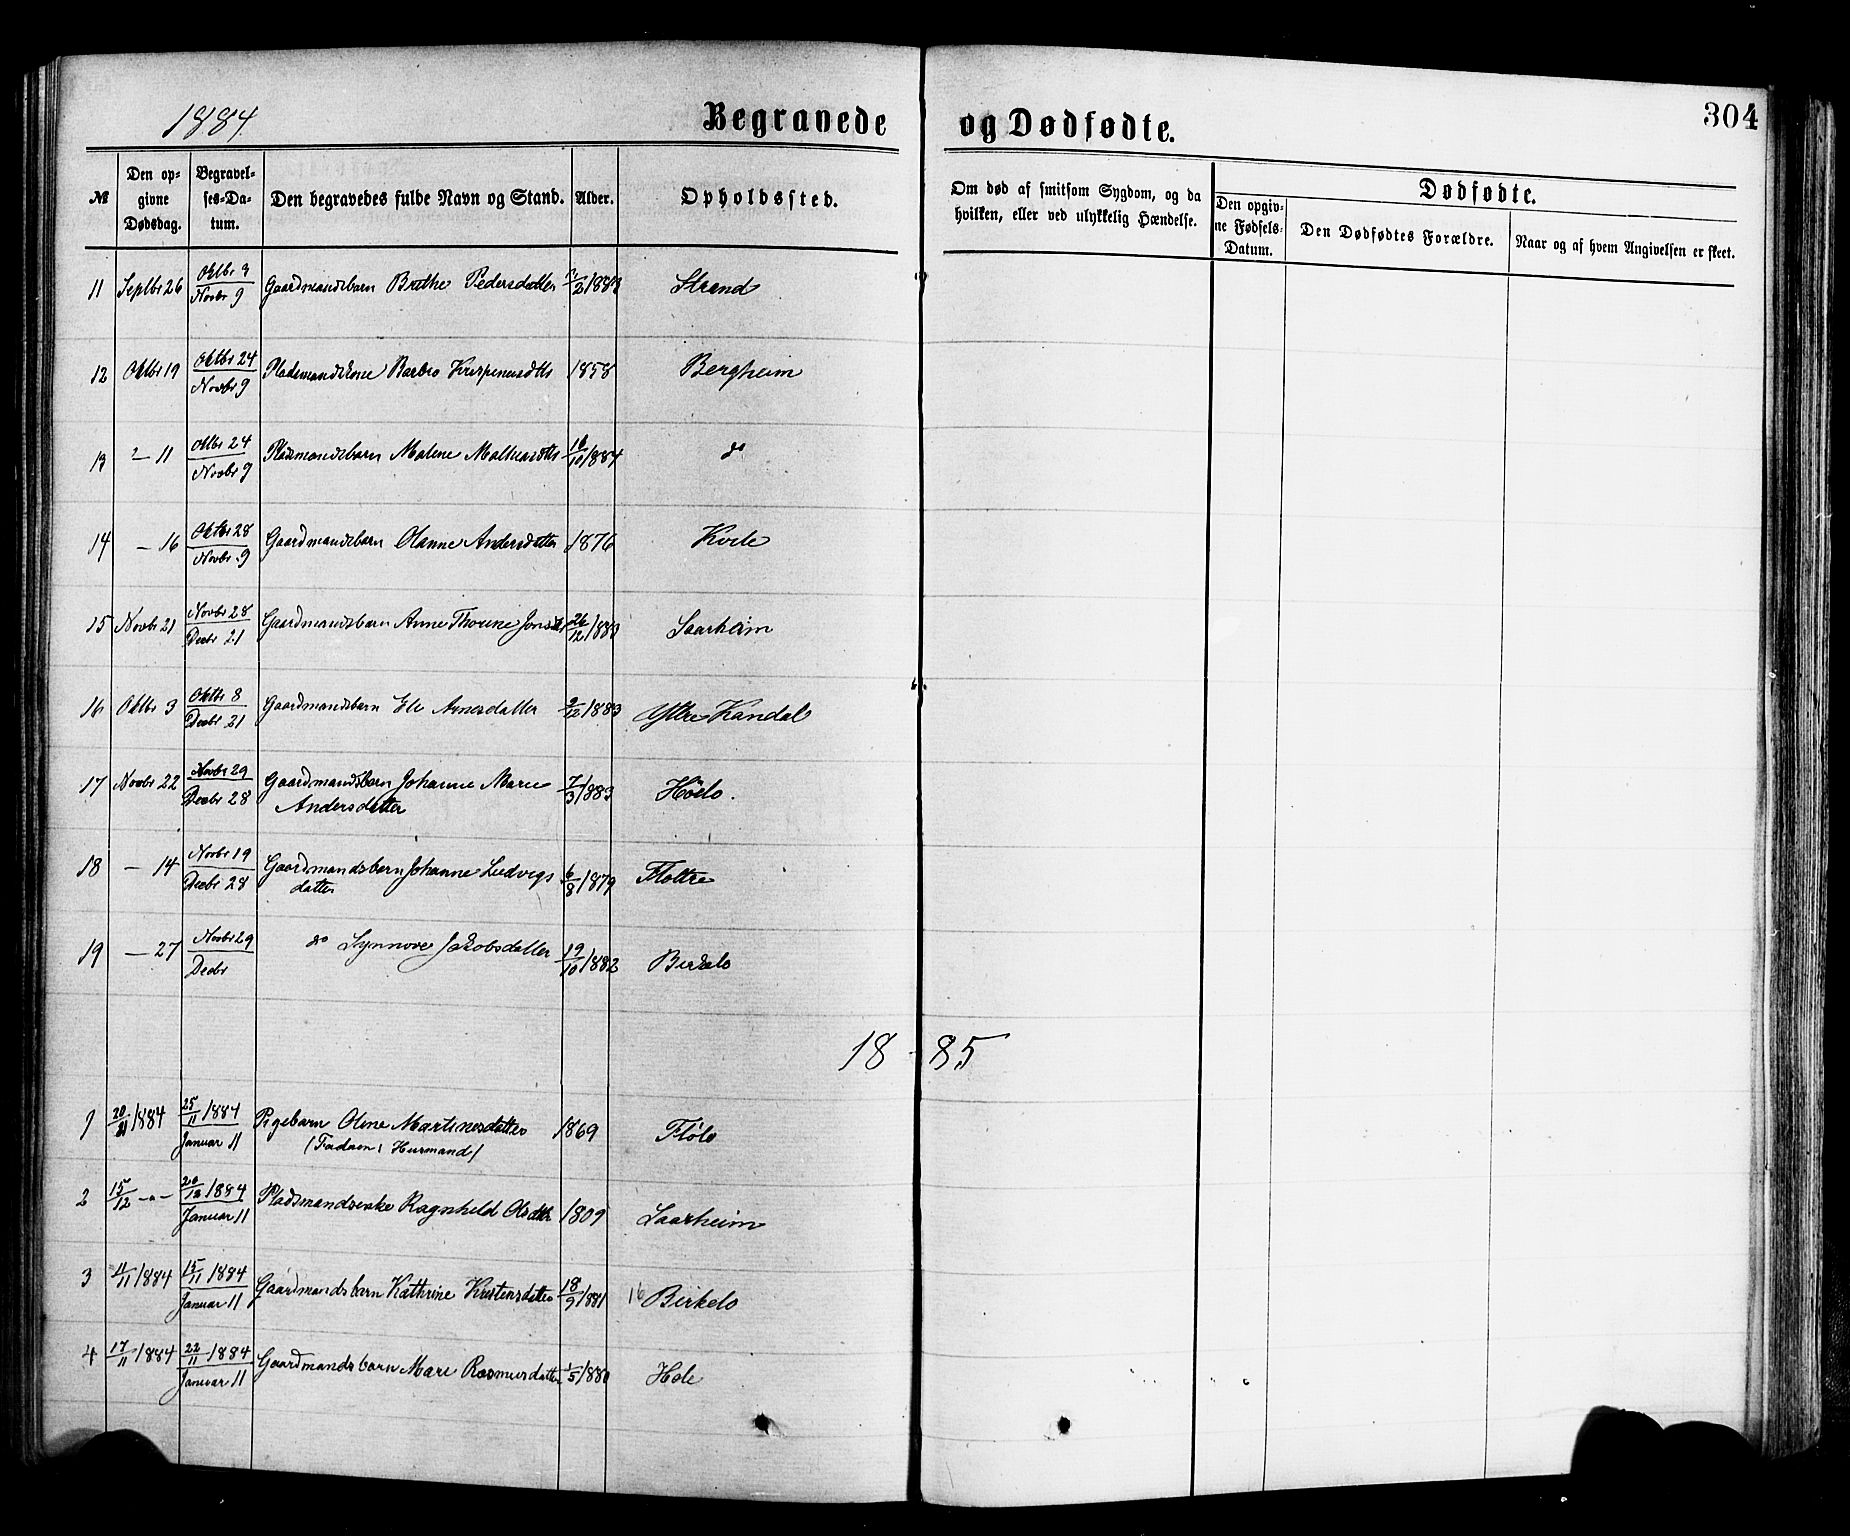 1884. Begravede og Dødfødte. 304
№ Den opgivne Dødsdag. Begravelses-Datum. Den begravedes fulde Navn og Stand. Alder. Opholdssted. Om død af smitsom Sygdom, og da hvilken, eller ved ulykkelig Hændelse. Dødfødte. Den opgivne Fødsels-Datum. Den Dødfødtes Forældre. Naar og af hvem Angivelsen er skeet.
11 Septbr 26 Oktbr 3 / Novbr 9 Gaardmandsbarn Brithe Pedersdatter /2 1883 Strand
12 Oktbr 19 Oktbr 24 / Novbr 9 Pladsmandskone Barbro 1858 Bergheim
13 " 11 Oktbr 24 / Novbr 9 Pladsmandsbarn Malene /10 1884 do
14 — 16 Oktbr 28 / Novbr 9 Gaardmandsbarn Olanne Andersdatter 1876 Kvile
15 Novbr 21 Novbr 28 / Decbr 21 Gaardmandsbarn Anne Thorine 26/12 1883 Saarheim
16 Oktbr 3 Oktbr 8 / Decbr 21 Gaardmandsbarn Eli Arnesdatter 2/12 1883 Yttre Kandal
17 Novbr 22 Novbr 29 / Decbr 28 Gaardmandsbarn Johanne Marie 7/3 1883
Andersdatter
18 — 14 Novbr 19 / Decbr 28 Gaardmandsbarn Johanne Ludvigs 6/8 1879 Flottre
datter
19 — 27 Novbr 29 / Decbr do Synnove Jakobsdatter 19/10 1882 Birkelo
18-85
1 20/ 1884 25/11 1884 / Januar 11 Pigebarn Oline Martinesdatter 1869 Flölo
(Faderen: Husmand)
2 15/12 -"- 20/12 1884 / Januar 11 Pladsmandsenke Ragnhild Olsdtr 1809 Saarheim
3 11/11 1884 15/11 1884 / Januar 11 Gaardmandsbarn Kathrine Kristensdatter 18/9 1881 16 Birkelo
4 17/11 1884 22/11 1884 / Januar 11 Gaardmandsbarn Mari Rasmusdatter 1/5 1880 Hole